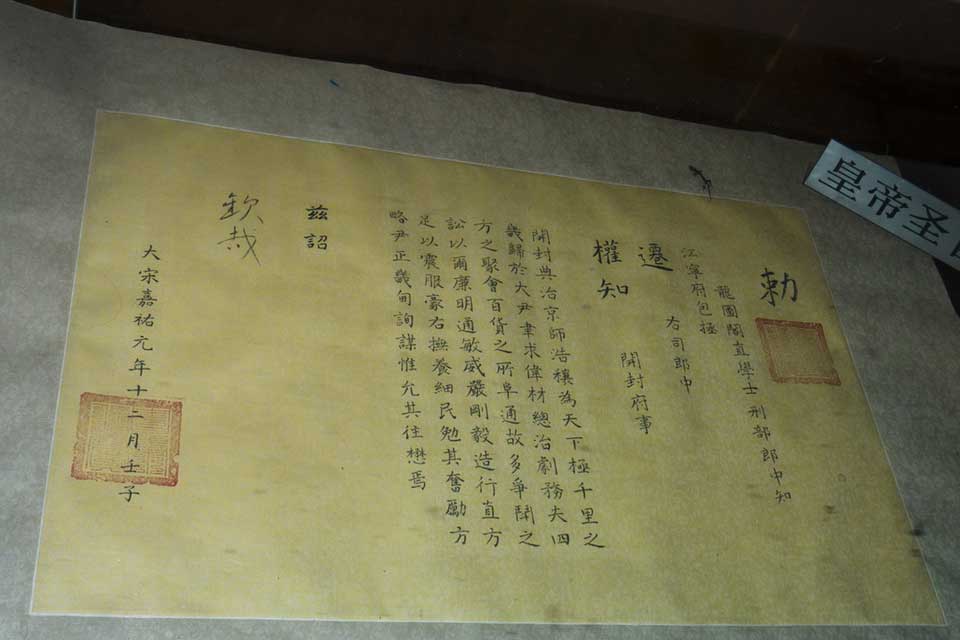 勅
龍圖閣直學士 刑部郎中知
江寧府包拯
右司郎中
遷
開封府事
權知
開封典治京師浩穰為天下極千里之
畿歸於大尹聿求偉材總治劇務夫四
方之聚會百貨之所阜通故多爭鬪之
訟以爾廉明通敏威嚴剛毅造行直方
足以震服豪右撫養細民勉其奮勵方
略尹正畿甸詢謀惟允其往懋焉
茲詔
欽哉
大宗嘉祐元年十二月壬子
皇帝圣